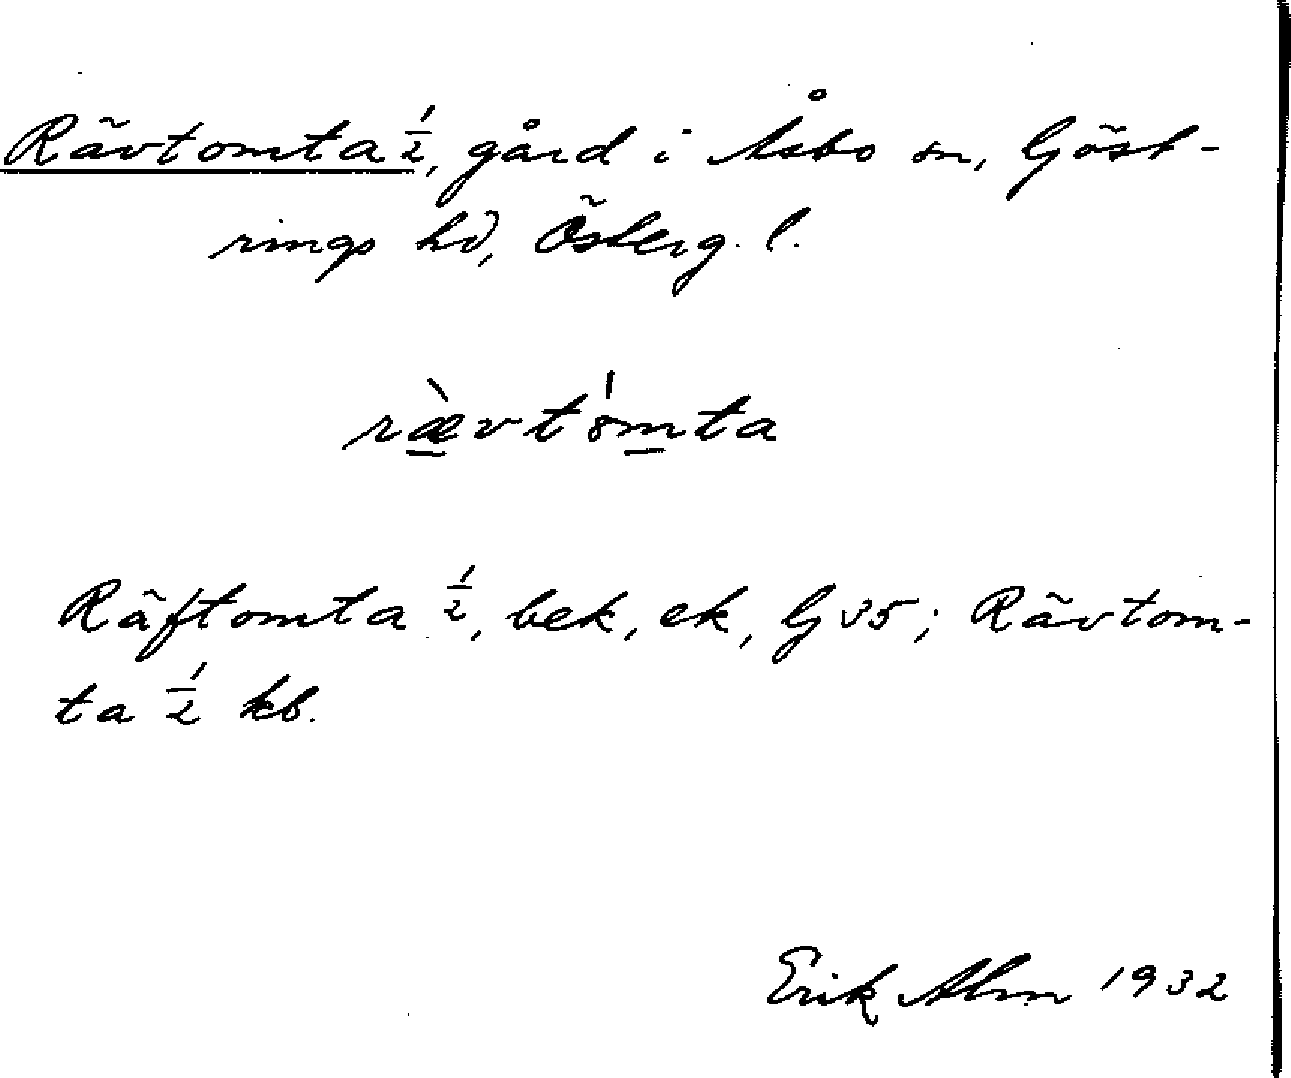 Rävtomta ½, gård i Åsbo sn, Göst-
rings hd, Österg. l.
rævtomta
Räftomta ½, bek, ek, G 35; Rävtom-
ta ½ kb.
Erik Alm 1932